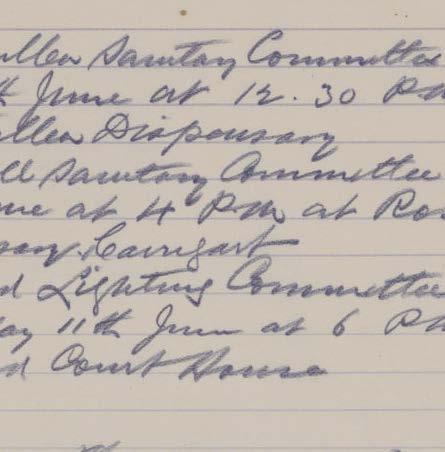 ullea Sanitary Committee
th June at 12.30 PM
ullea Dispensary
ll Sanitary Committee
une at 4 PM at Ros
sary Carrigart
d Lighting Committee
day 11th June at 6 PM
d Court House